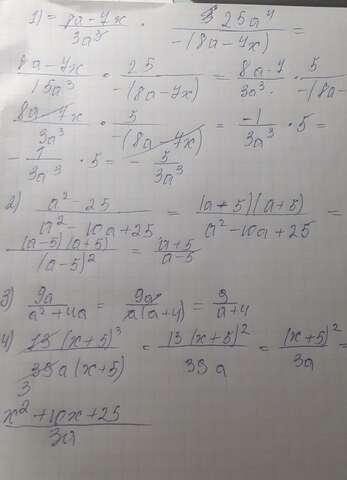 1) = 8a-7x/3a³ · 25a⁴/-(8a-7x) =
8a-7x/15a³ · 25/-(8a-7x) = 8a-7/3a³ · 5/-(8a-
8a-7x/3a³ · 5/-(8a-7x) = -1/3a³ · 5 =
- 1/3a³ · 5 = - 5/3a³
2) a²-25/a²-10a+25 = (a+5)(a+5)/a²-10a+25 =
(a-5)(a+5)/(a-5)² = a+5/a-5
3) 9a/a²+4a = 9a/a(a+4) = 9/a+4
4) 13(x+5)³/39a(x+5) = 13(x+5)²/39a = (x+5)²/3a =
3
x²+10x+25/3a